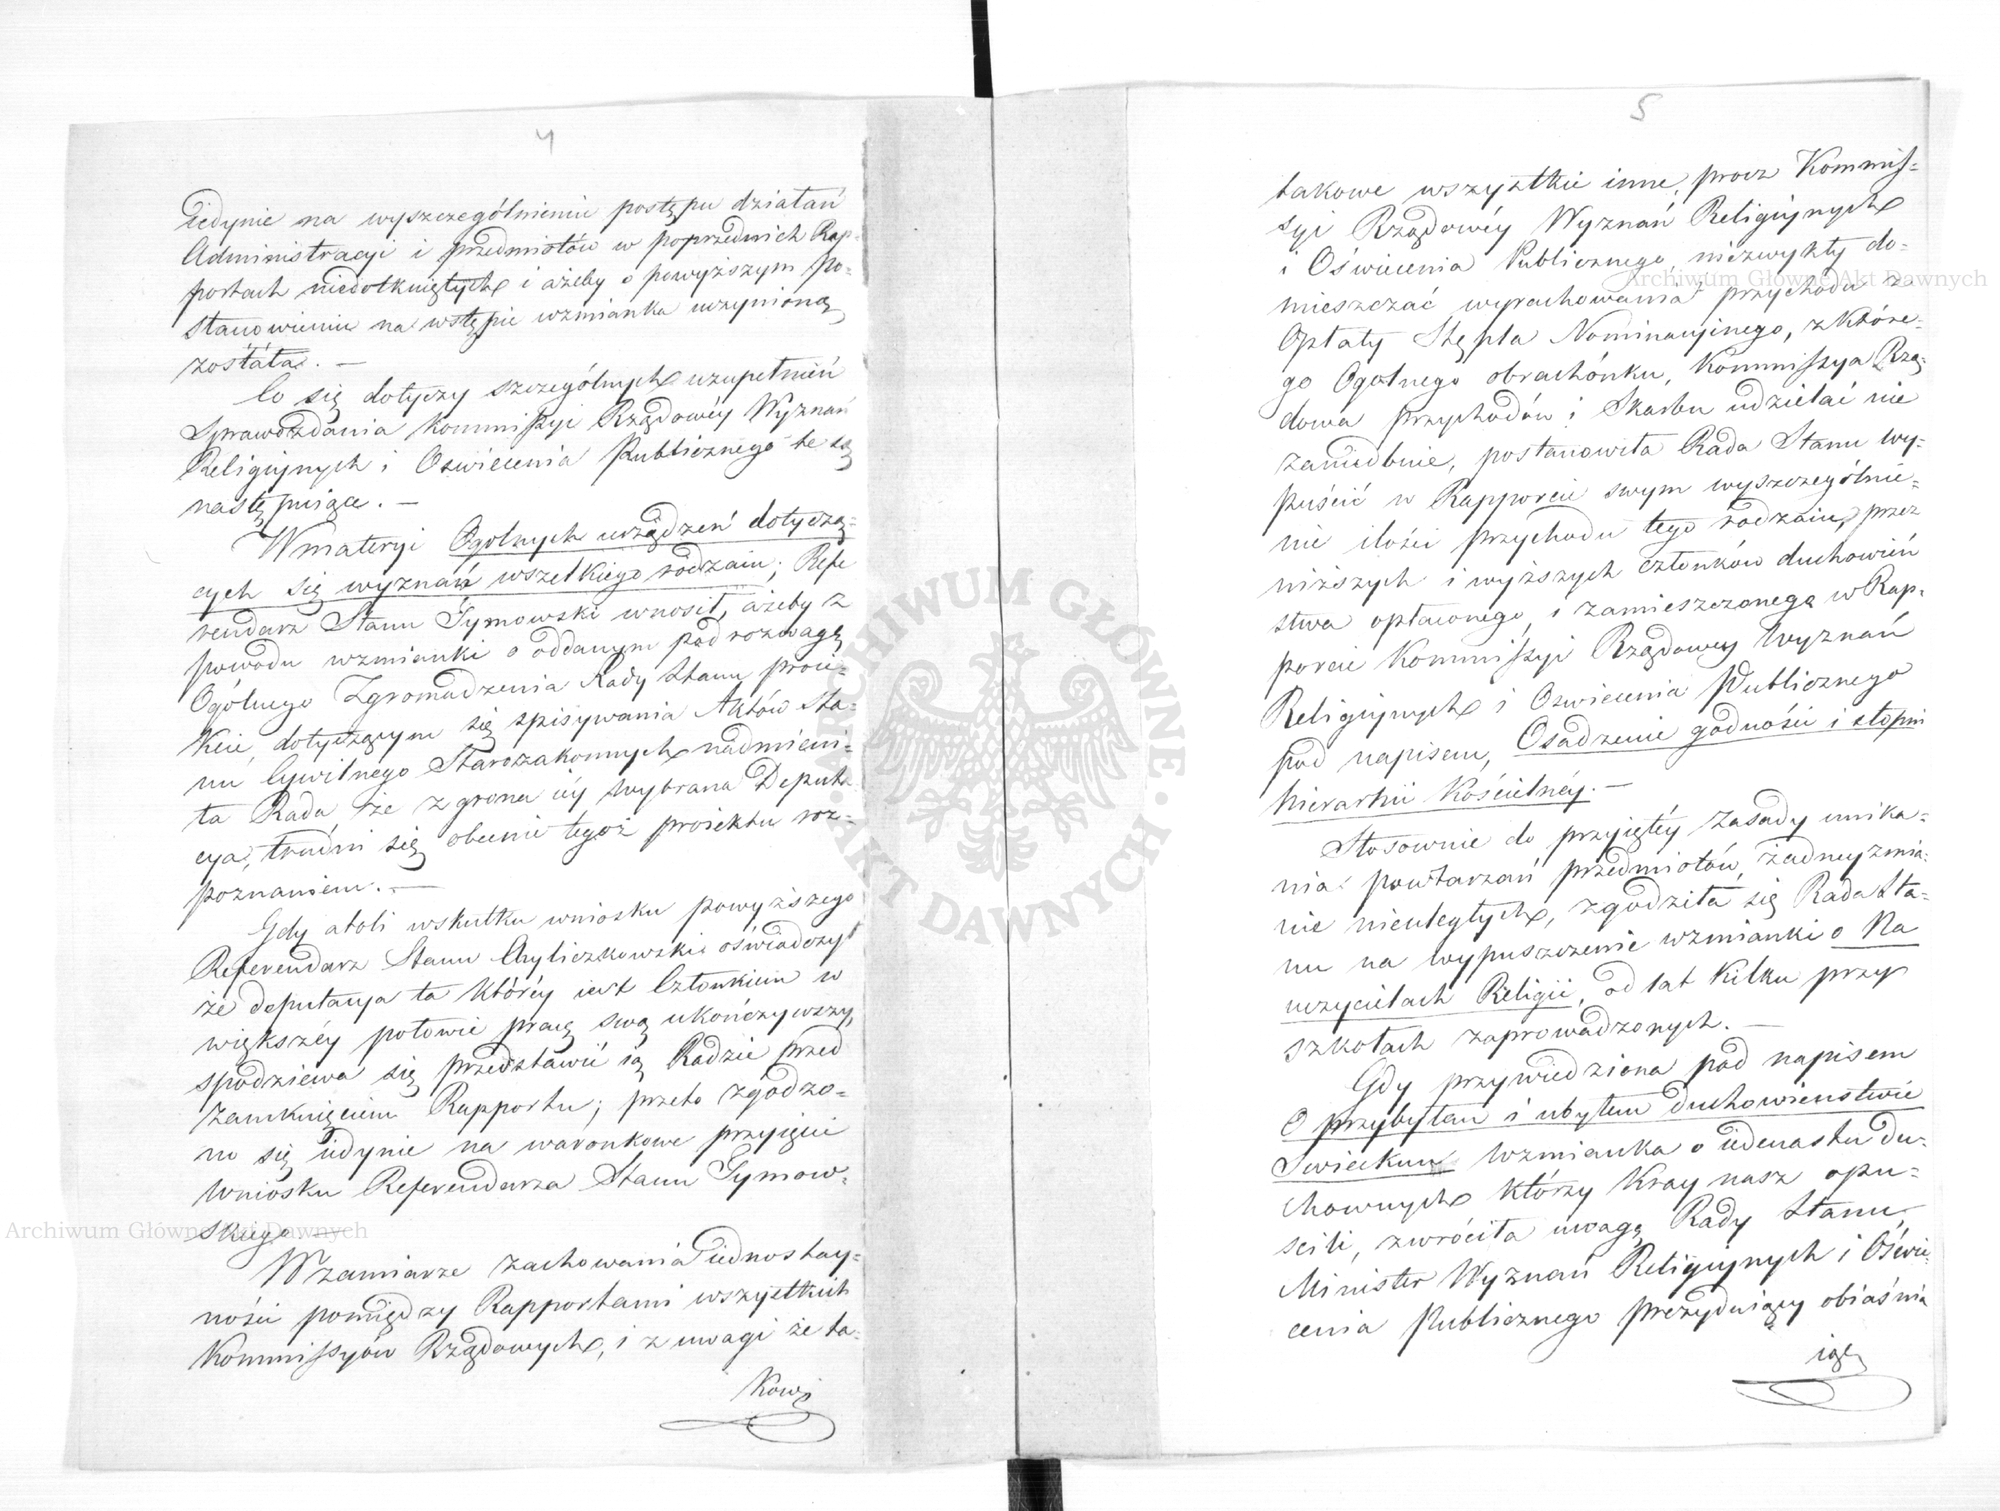 4
Jedynie na wyszczególnieniu postępu działań
Administracyi i przedmiotów w poprzednich Rap-
portach niedotkniętych i ażeby o powyższym po-
stanowieniu na wstępie wzmianka uczynioną
została. —
Co się dotyczy szczególnych uzupełnień
Sprawozdania Kommissyi Rządowéy Wyznań
Religijnych i Oswiecenia Publicznego te są
następuiące. —
W materyi Ogolnych urządzeń dotyczą-
cych się wyznań wszelkiego rodzaiu; Refe
rendarz Stanu Tymowski wnosił, ażeby z
powodu wzmianki o oddanym pod rozwagę
Ogólnego Zgromadzenia Rady Stanu proie-
kcie, dotyczącym się spisywania Aktów Sta-
nu Cywilnego Starozakonnych nadmieni-
ła Rada, że z grona iéy wybrana Deputa
cya, trudni się obecnie tegoż proiektu roz-
poznaniem. —
Gdy atoli wskutku wniosku powyższego
Referendarz Stanu Chyliczkowski oświadczył
że deputacya ta któréy iest Członkiem w
większéy połowie pracę swą ukończywszy,
spodziewa się przedstawić ią Radzie przed
zamknięciem Rapportu; przeto zgodzo-
no się iedynie na warunkowe przyięcie
wniosku Referendarza Stanu Tymow-
skiego —
W zamiarze zachowania iednostay-
ności pomiędzy Rapportami wszystkich
Kommissyów Rządowych, i z uwagi że ta-
kowe
5
takowe wszystkie inne, procz Kommis-
syi Rządowéy Wyznań Religijnych
i Oświecenia Publicznego, niezwykły do-
mieszczać wyrachowania przychodu z
Opłaty Stępla Nominacyinego, z które-
go Ogólnego obrachónku, Kommissya Rzą-
dowa Przychodów i Skarbu udzielać nie
zaniedbuie, postanowiła Rada Stanu wy-
puścić w Rapporcie swym wyszczególnie-
nie ilości przychodu tego rodzaiu, przez
niższych i wyższych członków duchowień
stwa opłaconego, i zamieszczonego w Rap-
porcie Kommissyi Rządowey Wyznań
Religijnych i Oswiecenia Publicznego
pod napisem, Osadzenie godności i stopni
hierarhii Kościelnéj. —
Stosownie do przyiętéy zasady unika-
nia powtarzań przedmiotów, żadney zmia-
nie nieuległych, zgodziła się Rada Sta-
nu na wypuszczenie wzmianki o Na
uczycielach Religii, od lat kilku przy
szkołach zaprowadzonych. —
Gdy przywiedziona pod napisem
O przybyłem i ubyłem duchowieństwie
Swieckim wzmianka o iedenastu du-
chownych którzy Kray nasz opu-
ścili, zwróciła uwagę Rady Stanu,
Minister Wyznań Religijnych i Oświe-
cenia Publicznego prezyduiący obiaśnia
iąc
Archiwum Główne Akt Dawnych
Archiwum Główne Akt Dawnych
ARCHIWUM GŁÓWNE AKT DAWNYCH